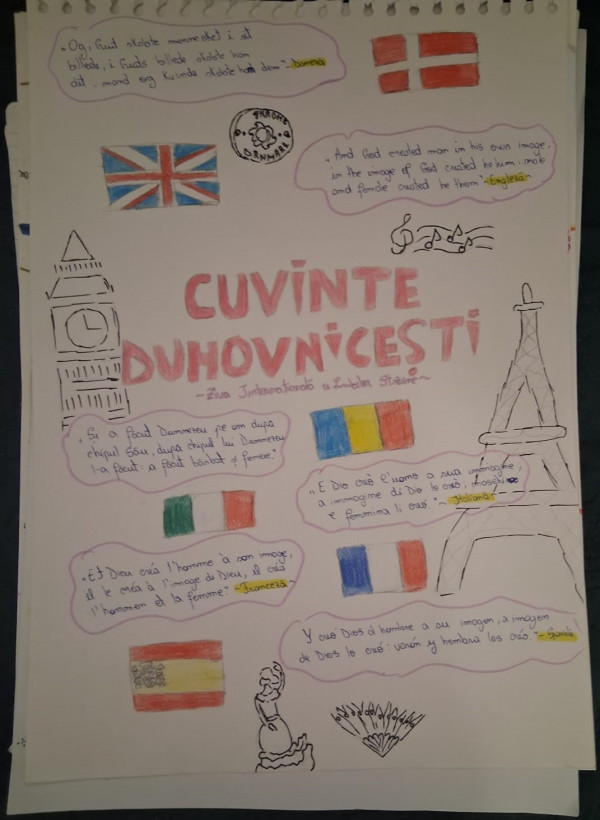 „Og, Gud skabte mennesket i sit
billede, i Guds billede skabte han
det, mand og kvinde skabte han dem" -Daneza
FRAGHE
DANMARK
„And God created man in his own image,
in the image of God created he him; male
and female created he them" -Engleza
CUVINTE
DUHOVNICEȘTI
~Ziua Internațională a Limbilor Străine~
„Și a făcut Dumnezeu pe om după
chipul Său, după chipul lui Dumnezeu
l-a făcut: a făcut bărbat și femeie."
„E Dio creò l'uomo a sua immagine;
a immagine di Dio lo creò; maschio
e femmina li creò." ~Italiană~
„Et Dieu créa l'homme à son image,
il le créa à l'image de Dieu, il créa
l'homme et la femme" ~Franceză~
Y creó Dios al hombre a su imagen, a imagen
de Dios lo creó: varón y hembra los creó."